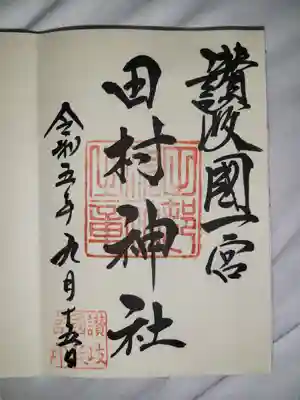 讃岐國一宮
田村神社
令和五年九月十五日
讃岐